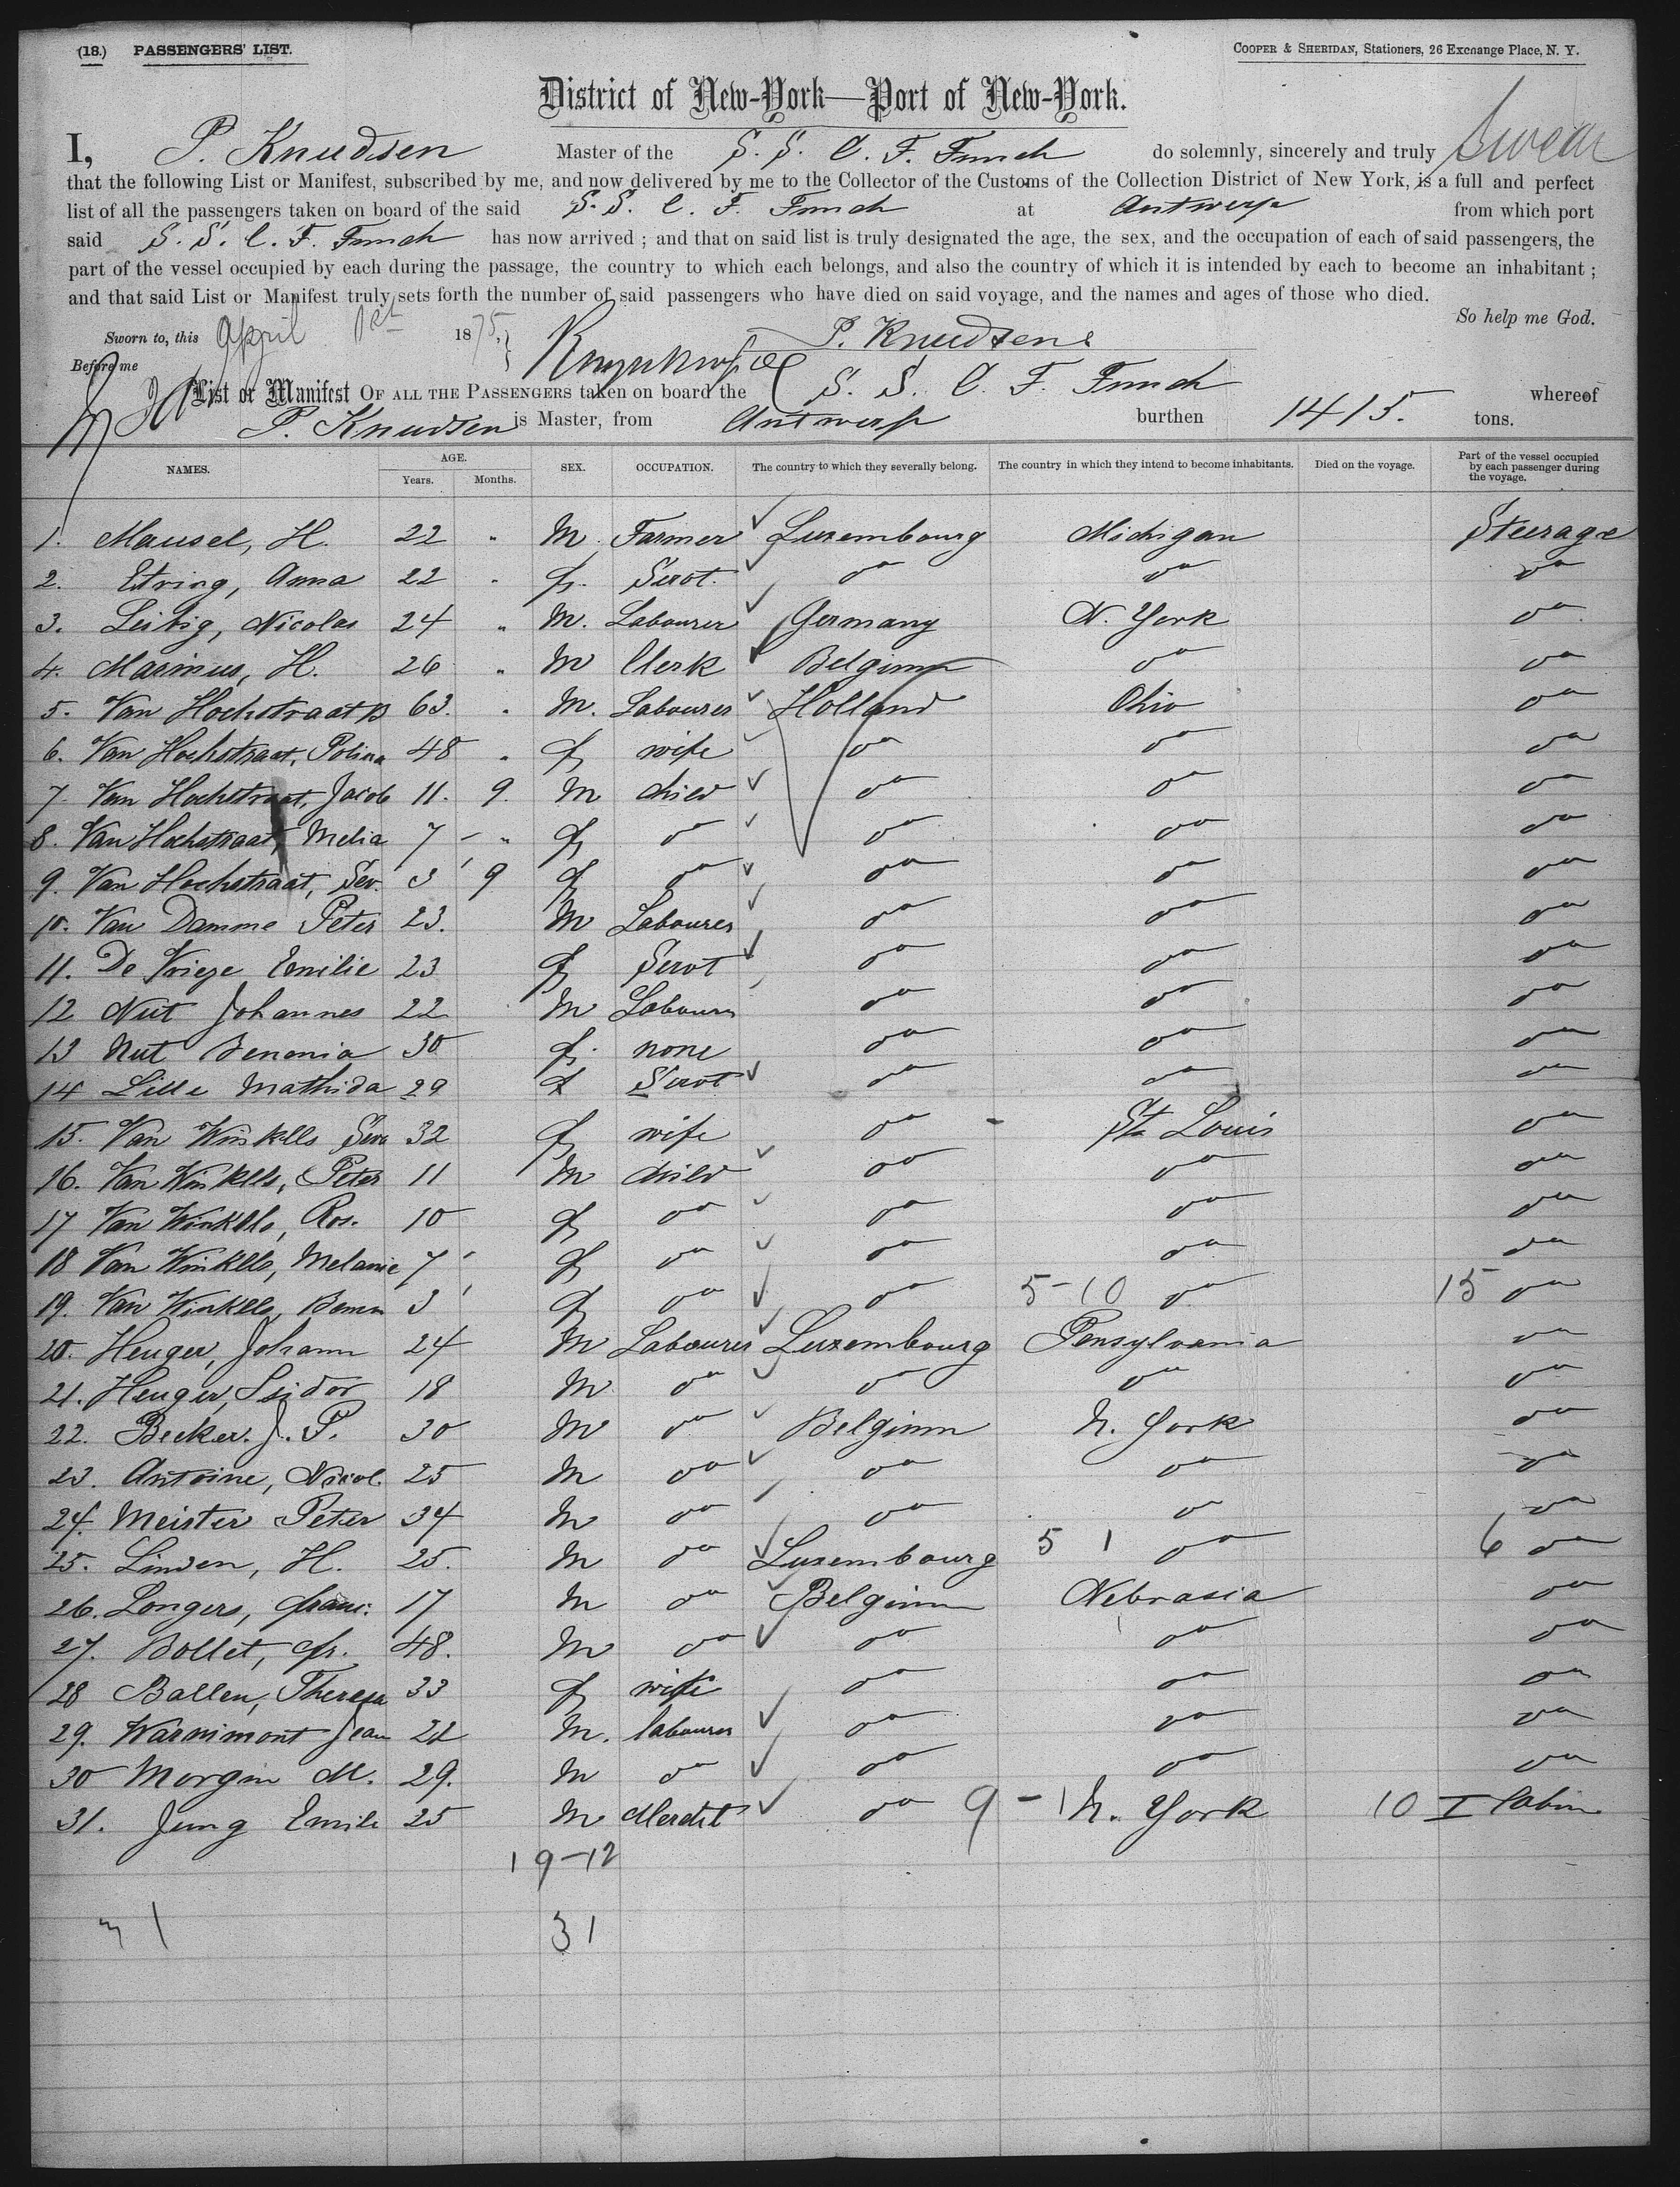 (18.) PASSENGERS' LIST. COOPER & SHERIDAN, Stationers, 26 Exchange Place, N. Y.
District of New-York—Port of New-York.
I, P. Knudsen Master of the S. S. C. F. Funch do solemnly, sincerely and truly swear
that the following List or Manifest, subscribed by me, and now delivered by me to the Collector of the Customs of the Collection District of New York, is a full and perfect
list of all the passengers taken on board of the said S. S. C. F. Funch at Antwerp from which port
said S. S. C. F. Funch has now arrived ; and that on said list is truly designated the age, the sex, and the occupation of each of said passengers, the
part of the vessel occupied by each during the passage, the country to which each belongs, and also the country of which it is intended by each to become an inhabitant ;
and that said List or Manifest truly sets forth the number of said passengers who have died on said voyage, and the names and ages of those who died.
So help me God.
Sworn to, this April 1st 1875, P. Knudsen
Before me
List or Manifest OF ALL THE PASSENGERS taken on board the S. S. C. F. Funch whereof
P. Knudsen is Master, from Antwerp burthen 1415. tons.
NAMES. AGE. Years. Months. SEX. OCCUPATION. The country to which they severally belong. The country in which they intend to become inhabitants. Died on the voyage. Part of the vessel occupied by each passenger during the voyage.
1. Mausel, H. 22 " M. Farmer Luxembourg Michigan Steerage
2. Etring, Anna 22 " f. Servt. do do do
3. Leibig, Nicolas 24 " M. Labourer Germany N. York do
4. Marinus, H. 26 " M Clerk Belgium do do
5. Van Hochstraat B 63. " M. Labourer Holland Ohio do
6. Van Hochstraat, Polina 48 " f wife do do do
7. Van Hochstraat, Jacob 11. 9. M child do do do
8. Van Hochstraat, Melia 7 - " f do do do do
9. Van Hochstraat, Sev. 3 9 f do do do do
10. Van Damme Peter 23. M Labourer do do do
11. De Vrieze Emilie 23 f Servt do do do
12 Nut Johannes 22 M Labourer do do do
13 Nut Benonia 30 f. none do do do
14 Lille Mathida 29 f Servt do do do
15. Van Winkells 32 f wife do - St. Louis do
16. Van Winkells, Peter 11 M child do do do
17 Van Winkells, Ros. 10 f do do do do
18 Van Winkells, Melanie 7 f do do do do
19. Van Winkells, 3 f do do 5-10 do 15 do
20. Heuger, Johann 24 M Labourer Luxembourg Pensylvania do
21. Heuger, Isidor 18 M do do do do
22. Becker. J. P. 30 M do Belgium N. York do
23. Antoine, Nicol. 25 M do do do do
24. Meister Peter 34 M do do do do
25. Linden, H. 25. M do Luxembourg 5 1 do 6 do
26. Longers, Franc. 17 M do Belgium Nebrasia do
27. Bollet, Fr. 48. M do do do do
28 Ballen, Theresa 33 f wife do do do
29. Warnimont Jean 22 M. labourer do do do
30 Morgin M. 29. M do do do do
31. Jung Emile 25 M do 9 - 1 N. York 10 I Cabin
19-12
31 31